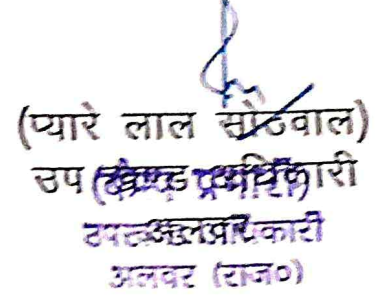 (प्यारे लाल सोठवाल)
उप खण्ड अधिकारी
अलवर
उपखण्ड अधिकारी
अलवर (राज०)